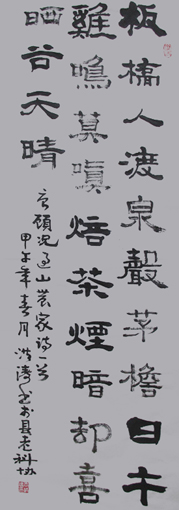 板橋人渡泉聲茅檐日午
雞鳴莫嗔焙茶煙暗却喜
晒谷天晴
顧况過山農家詩一首
甲午年春月 书於县老科协